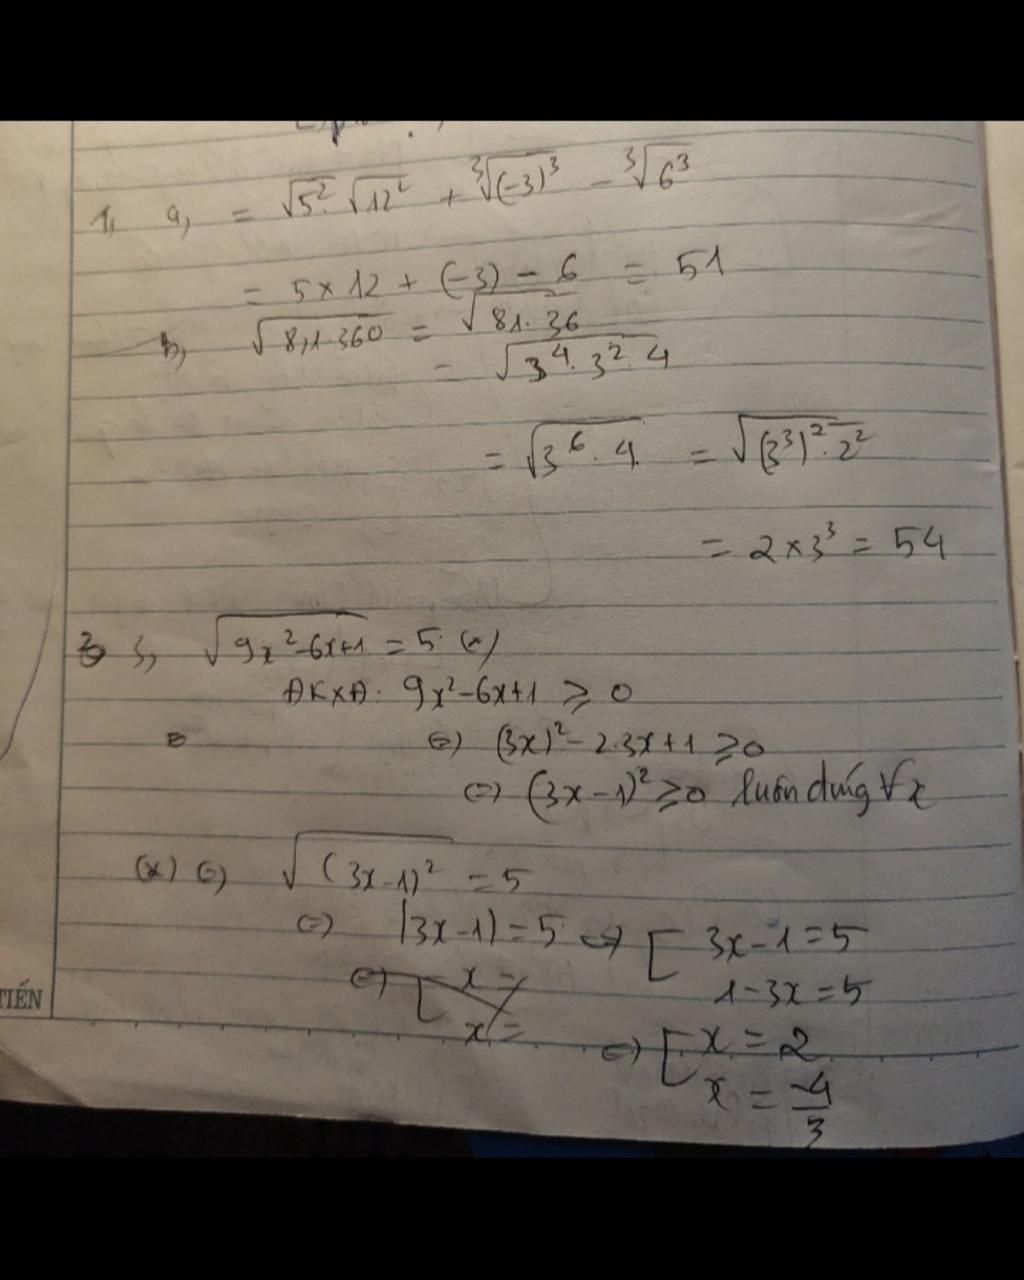 1, a, = √5². √12² + ∛(-3)³ - ∛6³
= 5 × 12 + (-3) - 6 = 51
b, √8,1.360 = √81.36
= √3⁴.3².4
= √3⁶.4 = √(3³)².2²
= 2×3³ = 54
√9x²-6x+1 = 5 (*)
ĐKXĐ: 9x²-6x+1 ≥ 0
(=) (3x)²-2.3x+1 ≥ 0
(=) (3x-1)² ≥ 0 luôn đúng ∀x
(*) (=) √(3x-1)² = 5
(=) |3x-1| = 5 (=) [ 3x-1=5
1-3x=5
(=) [ x =
x =
(=) [ x = 2
x = -4/3
TIẾN